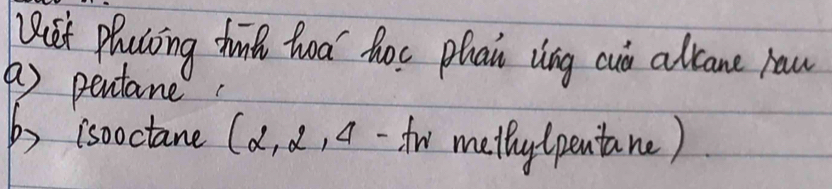 Viết phương trình hoá học phản ứng của alkane sau
a) pentane
b) isooctane (2,2,4 - tri methylpentane).